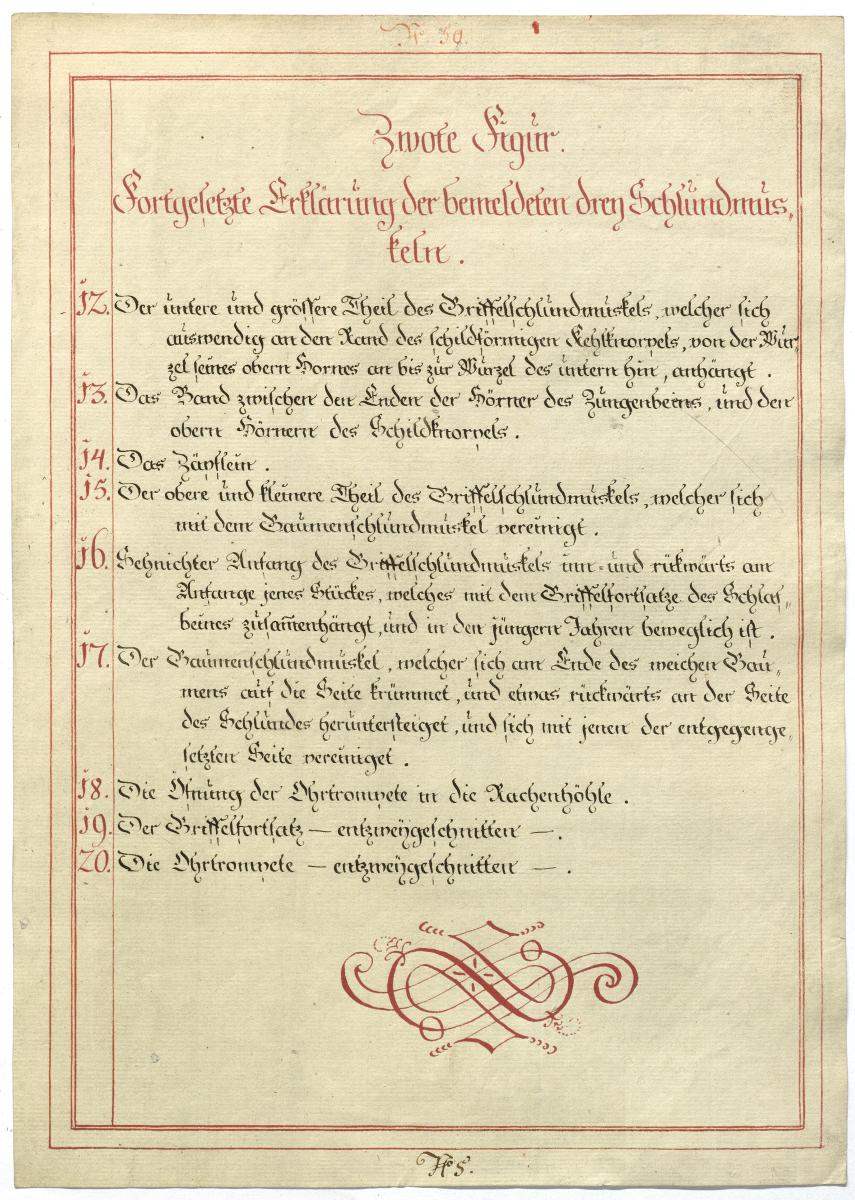 N° 59.
Zwote Figur.
Fortgesetzte Erklärung der bemeldeten drey Schlundmus„
keln .
12. Der untere und grössere Theil des Griffelschlundmuskels, welcher sich
auswendig an den Rand des schildförmigen Kehlknorpels, von der Wur„
zel seines obern Hornes an bis zur Wurzel des untern hin, anhängt .
13. Das Band zwischen den Enden der Hörner des Zungenbeins, und den
obern Hörnern des Schildknorpels .
14. Das Zäpflein .
15. Der obere und kleinere Theil des Griffelschlundmuskels, welcher sich
mit dem Gaumenschlundmuskel vereinigt .
16. Sehnichter Anfang des Griffelschlundmuskels inn= und rükwärts am
Anfange jenes Stückes, welches mit dem Griffelfortsatze des Schlaf„
beines zusam̅enhängt, und in den jüngern Jahren beweglich ist .
17. Der Gaumenschlundmuskel, welcher sich am Ende des weichen Gau„
mens auf die Seite krümmet, und etwas rückwärts an der Seite
des Schlundes heruntersteiget, und sich mit jenen der entgegenge„
setzten Seite vereiniget .
18. Die Öfnung der Ohrtrompete in die Rachenhöhle .
19. Der Griffelfortsatz — entzweygeschnitten — .
20. Die Ohrtrompete — entzweygeschnitten — .